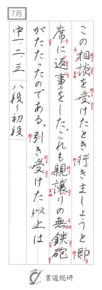 7月
この相談を受けたとき行きましょうと即
席に返事をした。これも親譲りの無鉄砲
がたたったのである。引き受けた以上は
中一・二・三 八段〜初段
書道総研